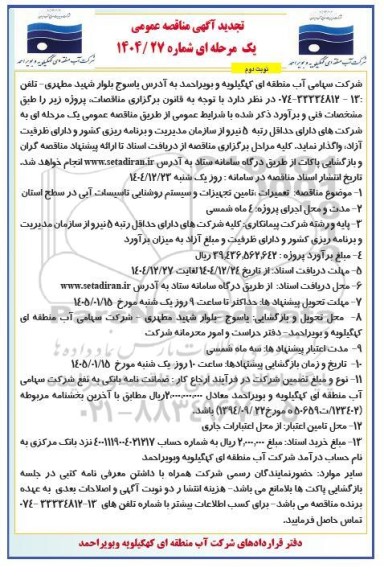 تجدید آگهی مناقصه عمومی
یک مرحله ای شماره ۲۷ /۱۴۰۴
نوبت دوم
شرکت سهامی آب منطقه ای کهگیلویه و بویراحمد
شرکت سهامی آب منطقه ای کهگیلویه و بویراحمد به آدرس یاسوج بلوار شهید مطهری- تلفن
۱۳- ۳۳۳۳۴۸۱۲-۰۷۴ در نظر دارد با توجه به قانون برگزاری مناقصات، پروژه زیر را طبق
مشخصات فنی و برآورد ذکر شده با شرایط عمومی از طریق مناقصه عمومی یک مرحله ای به
شرکت های دارای حداقل رتبه ۵ نیرو از سازمان مدیریت و برنامه ریزی کشور و دارای ظرفیت
آزاد، واگذار نماید. کلیه مراحل برگزاری مناقصه از دریافت اسناد تا ارائه پیشنهاد مناقصه گران
و بازگشایی پاکات از طریق درگاه سامانه ستاد به آدرس www.setadiran.ir انجام خواهد شد.
تاریخ انتشار اسناد مناقصه در سامانه : روز یک شنبه ۱۴۰۴/۱۲/۲۳
۱- موضوع مناقصه: تعمیرات ،تامین تجهیزات و سیستم روشنایی تاسیسات آبی در سطح استان
۲- مدت و محل اجرای پروژه: ۴ ماه شمسی
۳- پایه و رشته شرکت پیمانکاری: کلیه شرکت های دارای حداقل رتبه ۵ نیرو از سازمان مدیریت
و برنامه ریزی کشور و دارای ظرفیت و مبلغ آزاد به میزان برآورد
۴- مبلغ برآورد پروژه : ۳۹,۴۳۶,۵۶۲,۶۴۲ ریال
۵- مهلت دریافت اسناد: از تاریخ ۱۴۰۴/۱۲/۲۴ لغایت ۱۴۰۴/۱۲/۲۷
۶- محل دریافت اسناد: از طریق درگاه سامانه ستاد به آدرس www.setadiran.ir
۷- مهلت تحویل پیشنهاد ها: حداکثر تا ساعت ۹ روز یک شنبه مورخ ۱۴۰۵/۰۱/۱۵
۸- محل تحویل و بازگشایی: یاسوج -بلوار شهید مطهری - شرکت سهامی آب منطقه ای
کهگیلویه و بویراحمد- دفتر حراست و امور محرمانه شرکت
۹- مدت اعتبار پیشنهاد ها: سه ماه شمسی
۱۰- تاریخ و زمان بازگشایی پیشنهادها: ساعت ۱۰ روز یک شنبه مورخ ۱۴۰۵/۰۱/۱۵
۱۱- نوع و مبلغ تضمین شرکت در فرآیند ارجاع کار : ضمانت نامه بانکی به نفع شرکت سهامی
آب منطقه ای کهگیلویه و بویراحمد معادل ۲,۰۰۰,۰۰۰,۰۰۰ریال مطابق با آخرین بخشنامه مربوطه
(۱۲۳۴۰۲/ت۵۰۶۵۹ ه مورخ۱۳۹۴/۰۹/۲۲) باشد.
۱۲- محل تامین اعتبار: از محل اعتبارات جاری
۱۳- مبلغ خرید اسناد: مبلغ ۲,۰۰۰,۰۰۰ ریال به شماره حساب ۴۰۰۱۱۱۹۰۰۴۰۲۱۲۱۷ نزد بانک مرکزی به
نام حساب درآمد شرکت آب منطقه ای کهگیلویه وبویراحمد
سایر موارد: حضورنمایندگان رسمی شرکت همراه با داشتن معرفی نامه کتبی در جلسه
بازگشایی پاکت ها بلامانع می باشد- هزینه انتشا ر دو نوبت آگهی و اصلاحات بعدی به عهده
برنده مناقصه می باشد- برای کسب اطلاعات بیشتر با شماره تلفن های ۱۳-۳۳۳۳۴۸۱۲-۰۷۴
تماس حاصل فرمایید.
دفتر قراردادهای شرکت آب منطقه ای کهگیلویه وبویراحمد